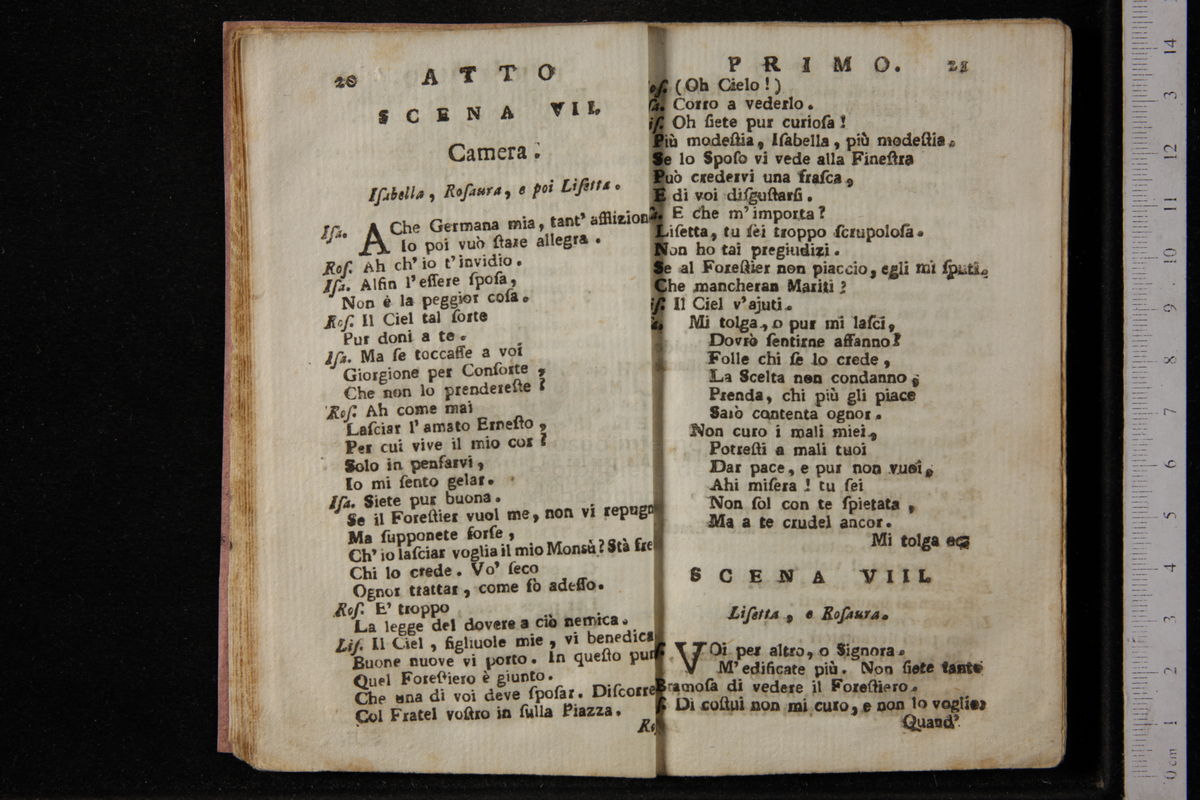 20 ATTO
SCENA VII.
Camera.
Iſabella, Roſaura, e poi Liſetta.
Iſa. AChe Germana mia, tant' afflizion
Io poi vuò ſtare allegra.
Roſ. Ah ch' io t' invidio.
Iſa. Alfin l' eſſere ſpoſa,
Non è la peggior coſa.
Roſ. Il Ciel tal ſorte
Pur doni a te.
Iſa. Ma ſe toccaſſe a voi
Giorgione per Conſorte,
Che non lo prendereſte?
Roſ. Ah come mai
Laſciar l' amato Erneſto,
Per cui vive il mio cor?
Solo in penſarvi,
Io mi ſento gelar.
Iſa. Siete pur buona.
Se il Foreſtier vuol me, non vi repugn
Ma ſupponete forſe,
Ch' io laſciar voglia il mio Monsù? Stà fre
Chi lo crede. Vo' ſeco
Ognor trattar, come fò adeſſo.
Roſ. E' troppo
La legge del dovere a ciò nemica.
Liſ. Il Ciel, figliuole mie, vi benedica
Buone nuove vi porto. In queſto pun
Quel Foreſtiero è giunto.
Che una di voi deve ſpoſar. Diſcorre
Col Fratel voſtro in ſulla Piazza.
Ro
PRIMO. 21
oſ. (Oh Cielo!)
ſa. Corro a vederlo.
iſ. Oh ſiete pur curioſa!
Più modeſtia, Iſabella, più modeſtia.
Se lo Spoſo vi vede alla Fineſtra
Può credervi una fraſca,
E di voi diſguſtarſi.
a. E che m' importa?
Liſetta, tu ſei troppo ſcrupoloſa.
Non ho tai pregiudizi.
Se al Foreſtier non piaccio, egli mi ſputi.
Che mancheran Mariti?
iſ. Il Ciel v' ajuti.
a. Mi tolga, o pur mi laſci,
Dovrò ſentirne affanno?
Folle chi ſe lo crede,
La Scelta non condanno;
Prenda, chi più gli piace
Sarò contenta ognor.
Non curo i mali miei,
Potreſti a mali tuoi
Dar pace, e pur non vuoi,
Ahi miſera! tu ſei
Non ſol con te ſpietata,
Ma a te crudel ancor.
Mi tolga ec.
SCENA VIII.
Liſetta, e Roſaura.
ſ. VOi per altro, o Signora.
M' edificate più. Non ſiete tanto
Bramoſa di vedere il Foreſtiero.
ſ. Di coſtui non mi curo, e non lo voglio;
Quand'